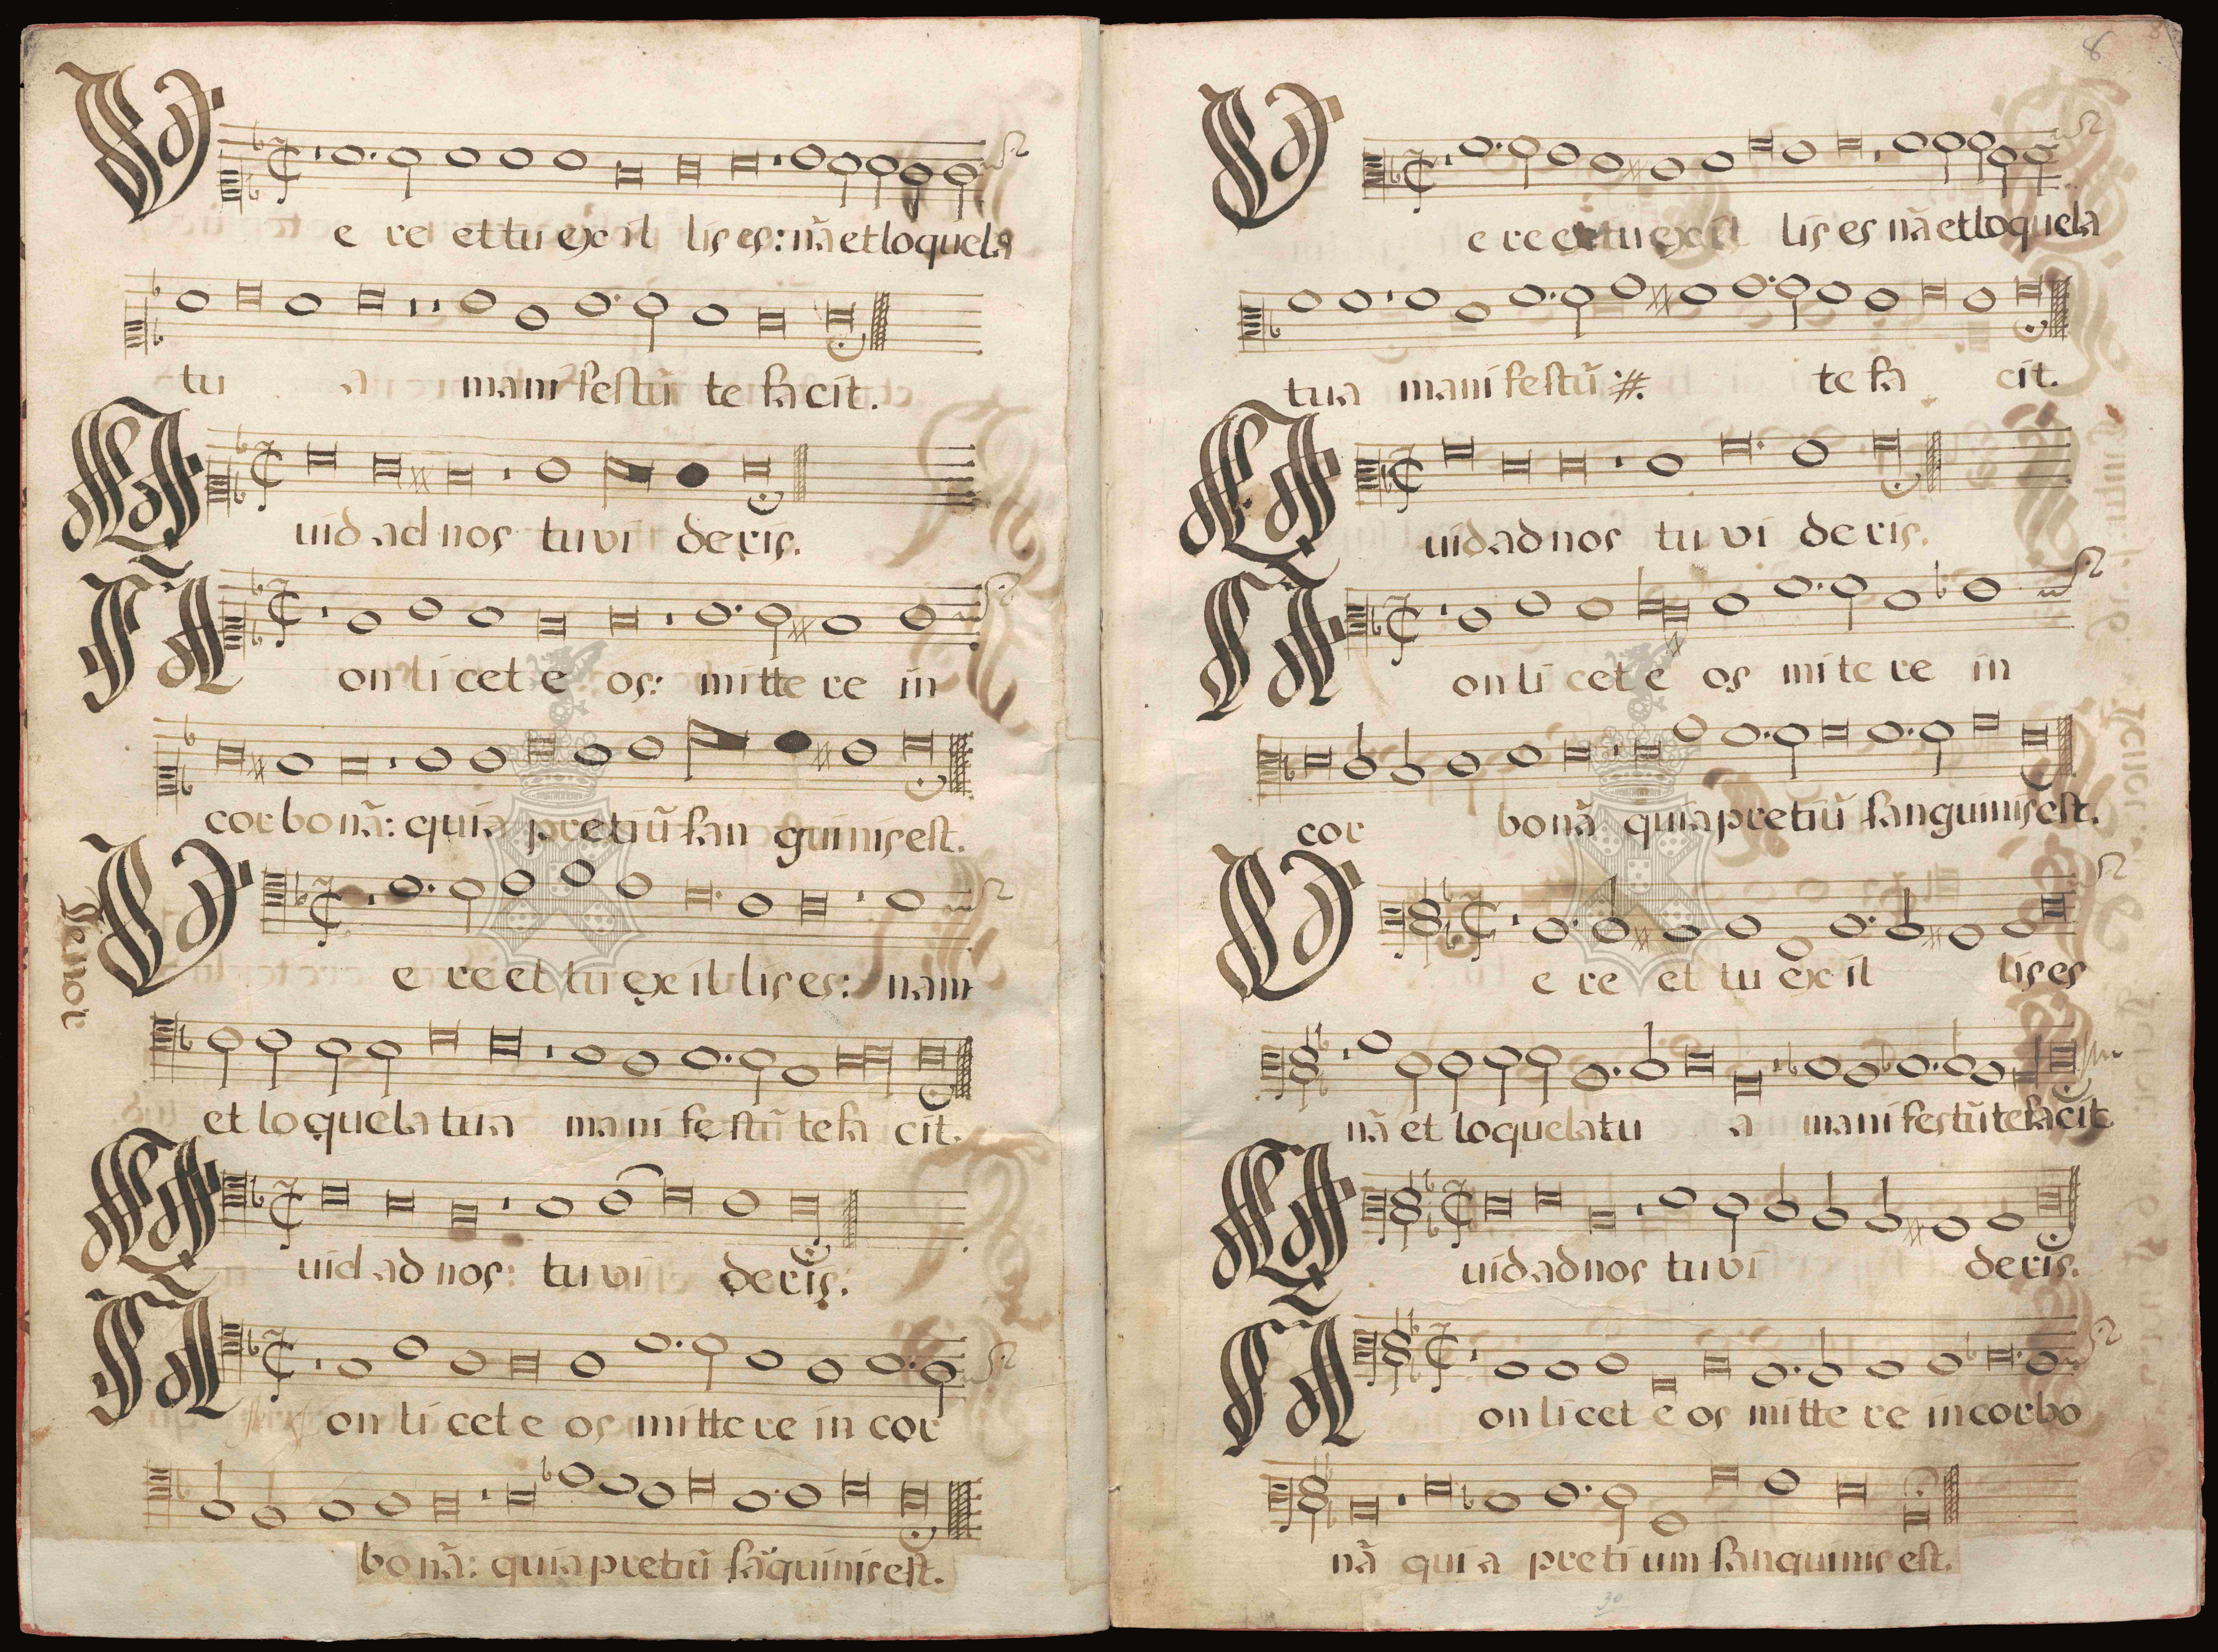 Vere et tu ex illis es: nã et loquela
tu a manifestũ te facit.
Quid ad nos tu videris.
Non licet eos: mittere in
corbonã: quia pretiũ sanguinis est.
Tenor
Vere et tu ex illis es: nam
et loquela tua manifestũ te facit.
Quid ad nos: tu videris.
Non licet eos mittere in cor
bonã: quia pretiũ sãguinis est.
8
Vere et tu ex illis es nã et loquela
tua manifestũ :#: te facit.
Quid ad nos tu videris.
Non licet eos mitere in
cor bonã quia pretiũ sanguinis est.
Vere et tu ex il lis es
nã et loquela tu a manifestũ te facit
Quid ad nos tu videris.
Non licet eos mittere in corbo
nã quia pretium sanguinis est.
30